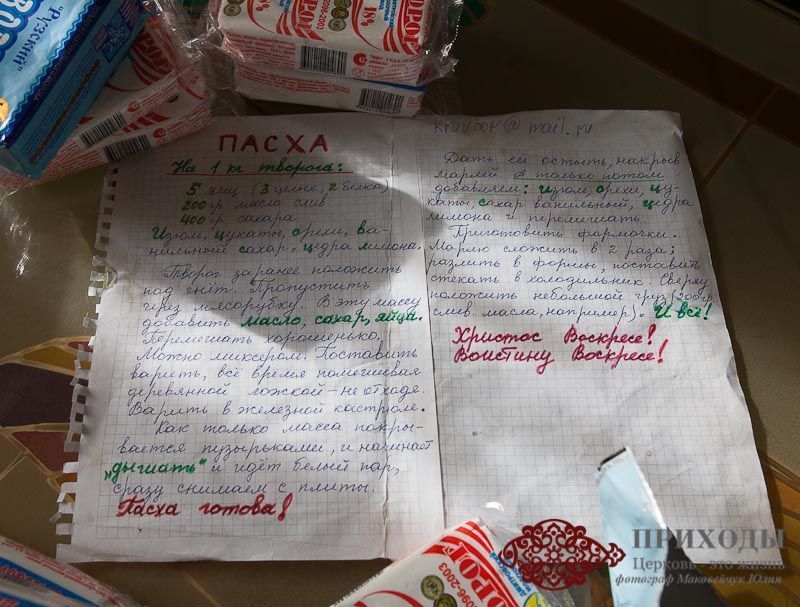 ПАСХА
На 1 кг творога:
5 яиц (3 целых, 2 белка)
200 гр масла слив.
400 гр сахара
Изюм, цукаты, орехи, ва-
нильный сахар, цедра лимона.
Творог заранее положить
под гнёт. Пропустить
через мясорубку. В эту массу
добавить масло, сахар, яйца.
Перемешать хорошенько,
Можно миксером. Поставить
варить, всё время помешивая
деревянной ложкой – не отходя.
Варить в железной кастрюле.
Как только масса покры-
вается пузырьками, и начинает
„дышать“ и идёт белый пар,
сразу снимаем с плиты.
Пасха готова!
@mail.ru
Дать ей остыть, накрыв
марлей. А только потом
добавляем: изюм, орехи, цу-
каты, сахар ванильный, цедра
лимона и перемешать.
Приготовить формочки.
Марлю сложить в 2 раза;
разлить в формы, поставить
стекать в холодильник. Сверху
положить небольшой груз (200 гр
слив. масла, например). И всё!
Христос Воскресе!
Воистину Воскресе!
"РУЗСКИЙ"
18%
ПРИХОДЫ
Церковь - это жизнь
фотограф Маковейчук Юлия